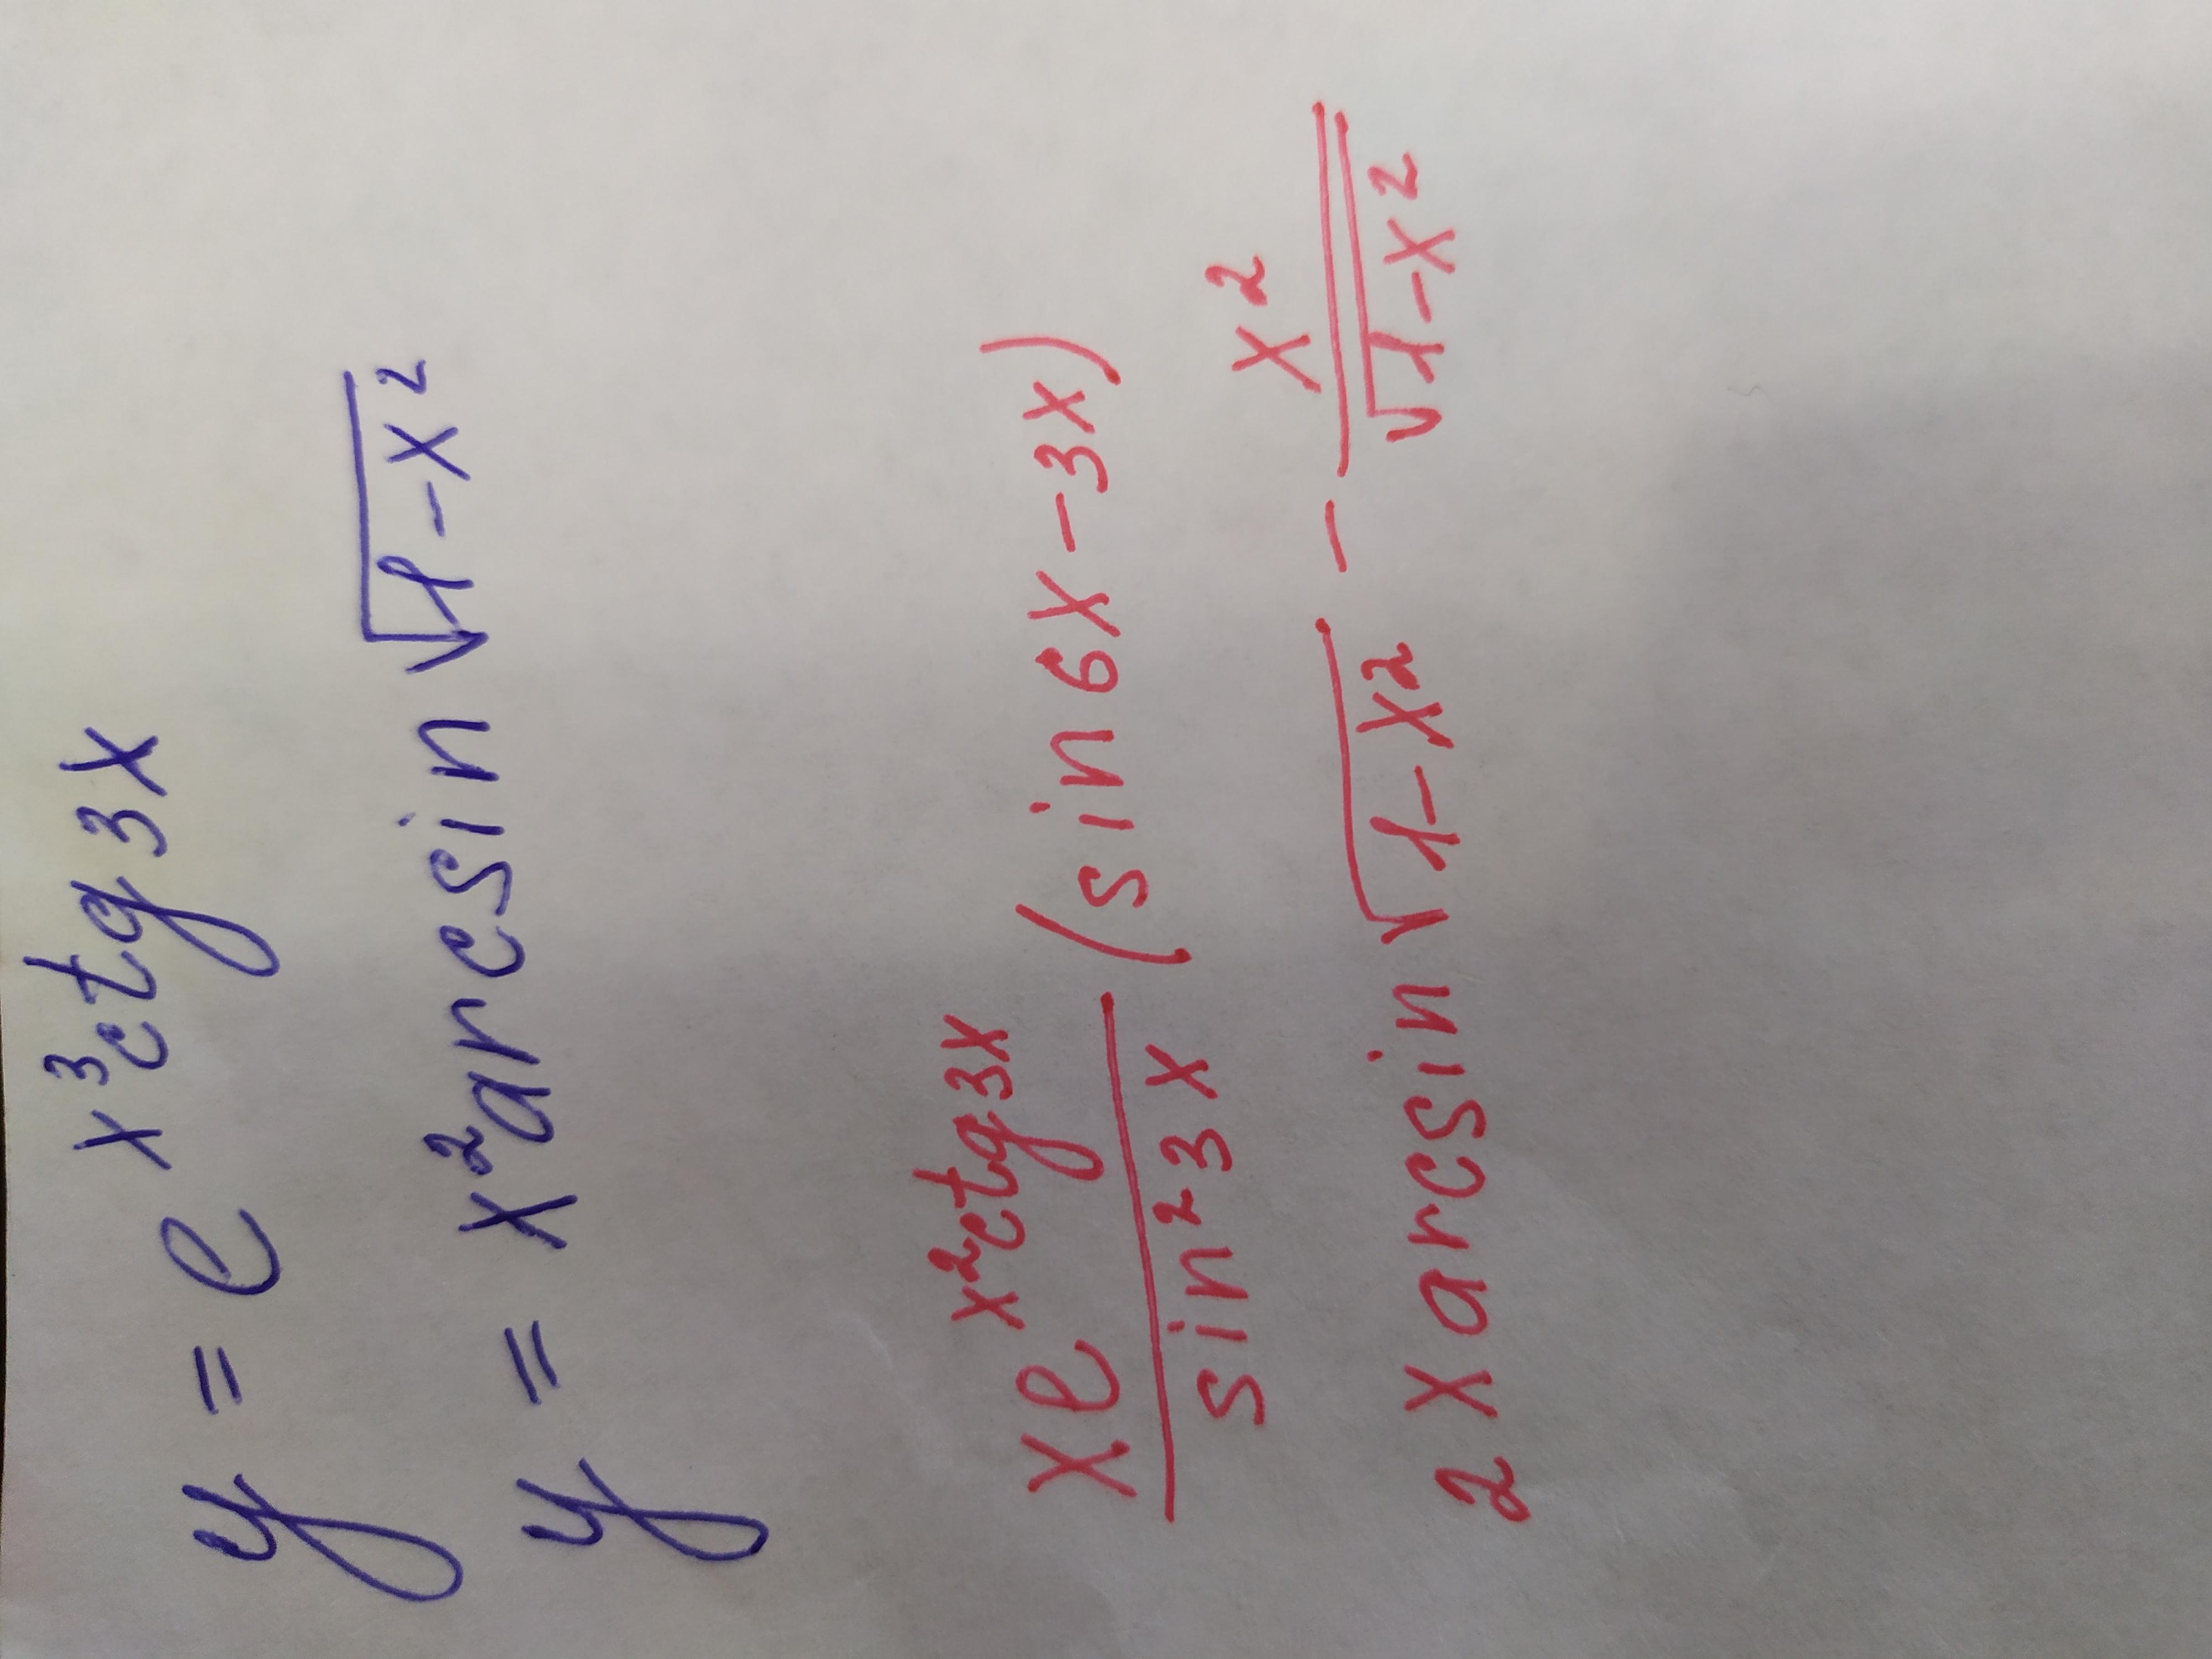 y = e^{x^3 ctg 3x}
y = x^2 arcsin √(1-x^2)
\frac{xe^{x^2 ctg 3x}}{sin^2 3x} (sin 6x - 3x)
2x arcsin √(1-x^2) - \frac{x^2}{√(1-x^2)}